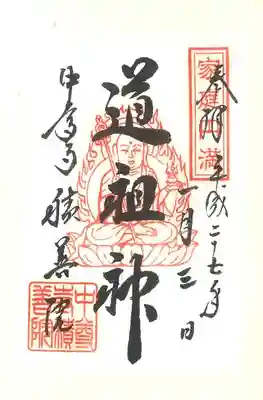 家庭圓満
奉拝 平成二七年
一月三日
道祖神
中尊寺積善院
中尊
寺積
善院